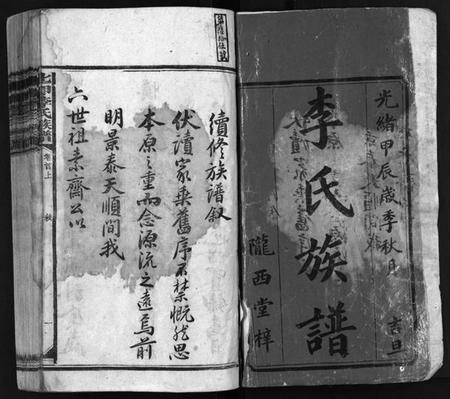 光緒甲辰歲季秋月
吉旦
李氏族譜
隴西堂梓
續修族譜敘
伏讀家乘舊序不禁慨然思
本原之重而念源流之遠焉前
明景泰天順間我
六世祖素齋公以
李氏族譜
卷首上